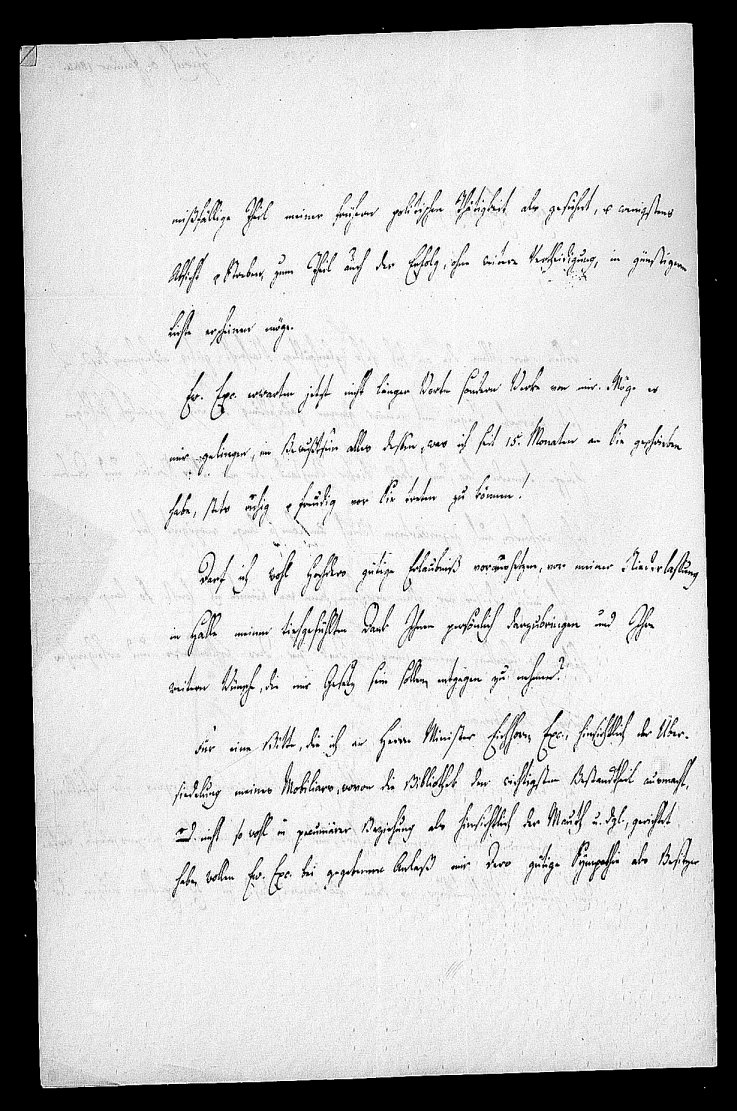 mißfällige Theil meiner frühern politischen Thätigkeit als geführt, u wenigstens
Absicht u Streben, zum Theil auch der Erfolg, ohne weitere Vertheidigung, in günstigerem
Lichte erscheinen möge.
Ew. Exc. erwarten jetzt nicht länger Worte sondern Werke von mir. Möge es
mir gelingen, im Bewußtsein alles dessen, was ich seit 15. Monaten an Sie geschrieben
habe, stets ruhig u freudig vor Sie treten zu können!
Darf ich wohl Hochdero gütige Erlaubniß voraussetzen, vor meiner Niederlassung
in Halle meinen tiefgefühlten Dank Ihnen persönlich darzubringen und Ihre
weitern Wünsche, die mir Gesetz sein sollen, entgegen zu nehmen?
Für eine Bitte, die ich an Herrn Minister Eichhorn Exc., hinsichtlich der Über-
siedelung meines Mobiliars, wovon die Bibliothek den wichtigsten Bestandtheil ausmacht,
u. nicht so wohl in pecuniärer Beziehung als hinsichtlich der Mauth u. dgl., gerichtet
habe, wollen Ew. Exc. bei gegebenem Anlaß mir Dero gütige Sympathie als Besitzer